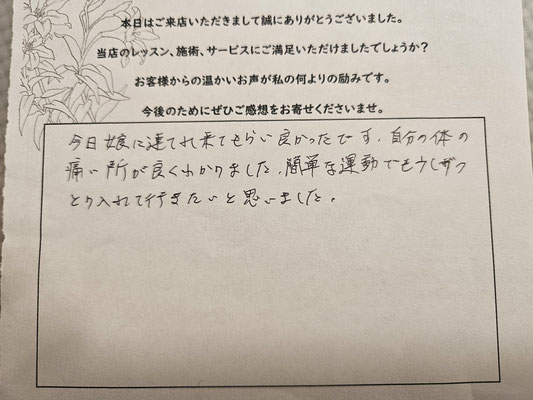 本日はご来店いただきまして誠にありがとうございました。
当店のレッスン、施術、サービスにご満足いただけましたでしょうか?
お客様からの温かいお声が私の何よりの励みです。
今後のためにぜひご感想をお寄せくださいませ。
今日娘に連れて来てもらい良かったです。自分の体の
痛い所が良くわかりました。簡単な運動でも少しずつ
とり入れて行きたいと思いました。